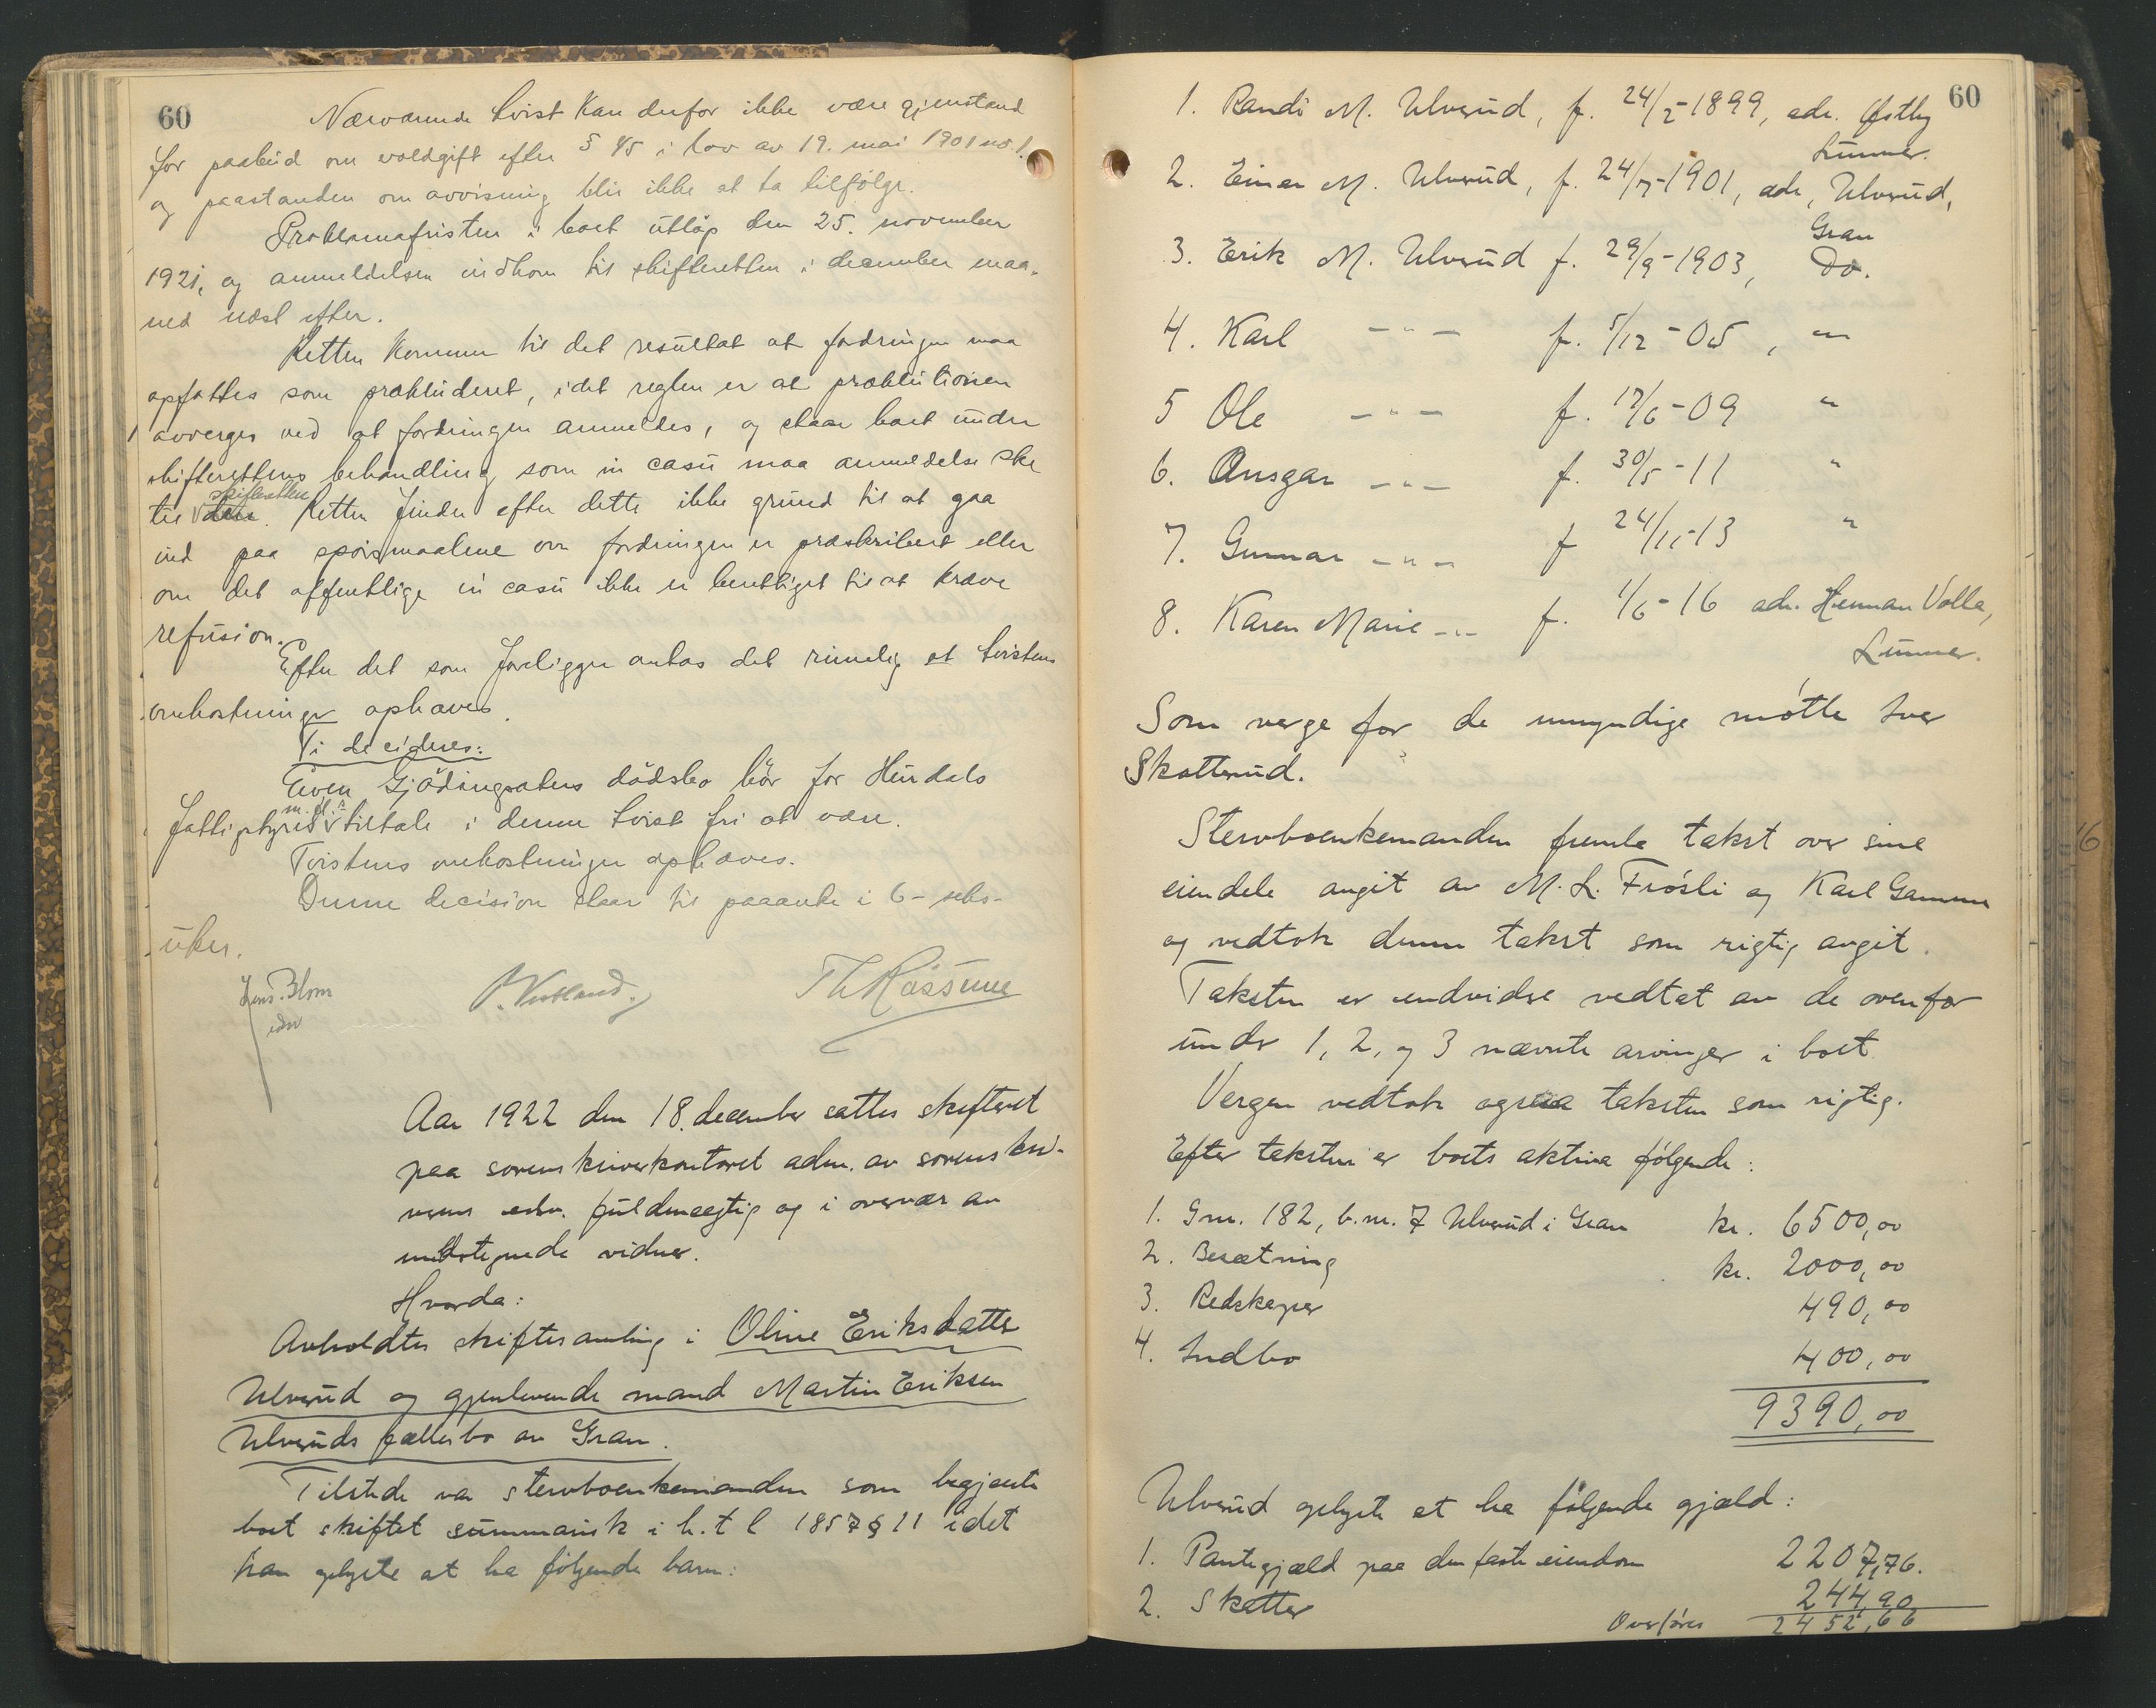 60
Nærværende tvist kan derfor ikke være gjenstand
for paabud om voldgift efter § 45 i lov av 19. mai 1901 no 1.
og paastanden om avvisning blir ikke at ta tilfølge.
Proklamafristen i boet utløp den 25. november
1921, og anmeldelsen indkom til skifteretten i december maa-
ned næst efter.
Retten kommer til det resultat at fordringen maa
opfattes som prækluderet, idet reglen er at præklutionen
avverges ved at fordringen anmeldes, og staar boet under
skifterettens behandling som in casu maa anmeldelse ske
til skifteretten. Retten finder efter dette ikke grund til at gaa
ind paa spørsmaalene om fordringen er præskribert eller
om det offentlige in casu ikke er berettiget til at kræve
refusion.
Efter det som foreligger antas det rimelig at tvistens
omkostninger ophæves.
Ti decideres:
Even Gjødingsaters dødsbo bør for Hurdals
fattigstyres m. fl.s tiltale i denne tvist fri at være.
Tvistens omkostninger ophæves.
Denne decision staar til paaanke i 6 - seks-
uker.
Jens. Blom
Aar 1922 den 18. december sattes skifteret
paa sorenskriverkontoret adm. av sorenskri-
verens edsv. fuldmægtig og i overvær av
undertegnede vidner.
Hvorda:
Avholdtes skiftesamling i Oline Eriksdatter
Ulvsrud og gjenlevende mand Martin Eriksen
Ulvsruds fællesbo av Gran.
Tilstede var stervboenkemanden som begjærte
boet skiftet summarisk i h. t l 1857 § 11 idet
han oplyste at ha følgende barn:
60
1. Randi M. Ulvsrud, f. 24/2-1899, adr. Østby
Lunner.
2. Einar M. Ulvsrud, f. 24/7-1901, adr, Ulvsrud,
Gran
3. Erik M. Ulvsrud f. 29/9-1903, Do.
4. Karl - " - f. 5/12-05, "
5 Ole - " - f. 17/6-09 "
6. Ansgar - " - f. 30/5-11 "
7. Gunnar - " - f 24/11-13 "
8. Karen Marie - " - f. 1/6-16 adr. Herman Volla,
Lunner.
Som verge for de umyndige møtte Iver
Skatterud.
Stervboenkemanden fremla takst over sine
eiendele avgit av M. L. Frøsli og Karl Gamme
og vedtok denne takst som rigtig avgit.
Taksten er endvidre vedtat av de ovenfor
under 1, 2, og 3 nævnte arvinger i boet.
Vergen vedtok ogsaa taksten som rigtig.
Efter taksten er boets aktiva følgende:
1. Gnr. 182, b.nr. 7 Ulvsrud i Gran kr. 6500,00
2. Besætning kr. 2000,00
3. Redskaper 490,00
4. Indbo 400,00
9390,00
Ulvsrud oplyste at ha følgende gjæld:
1. Pantegjæld paa den faste eiendom 2207,76.
2. Skatter 244,90
Overføres 2452,66
16